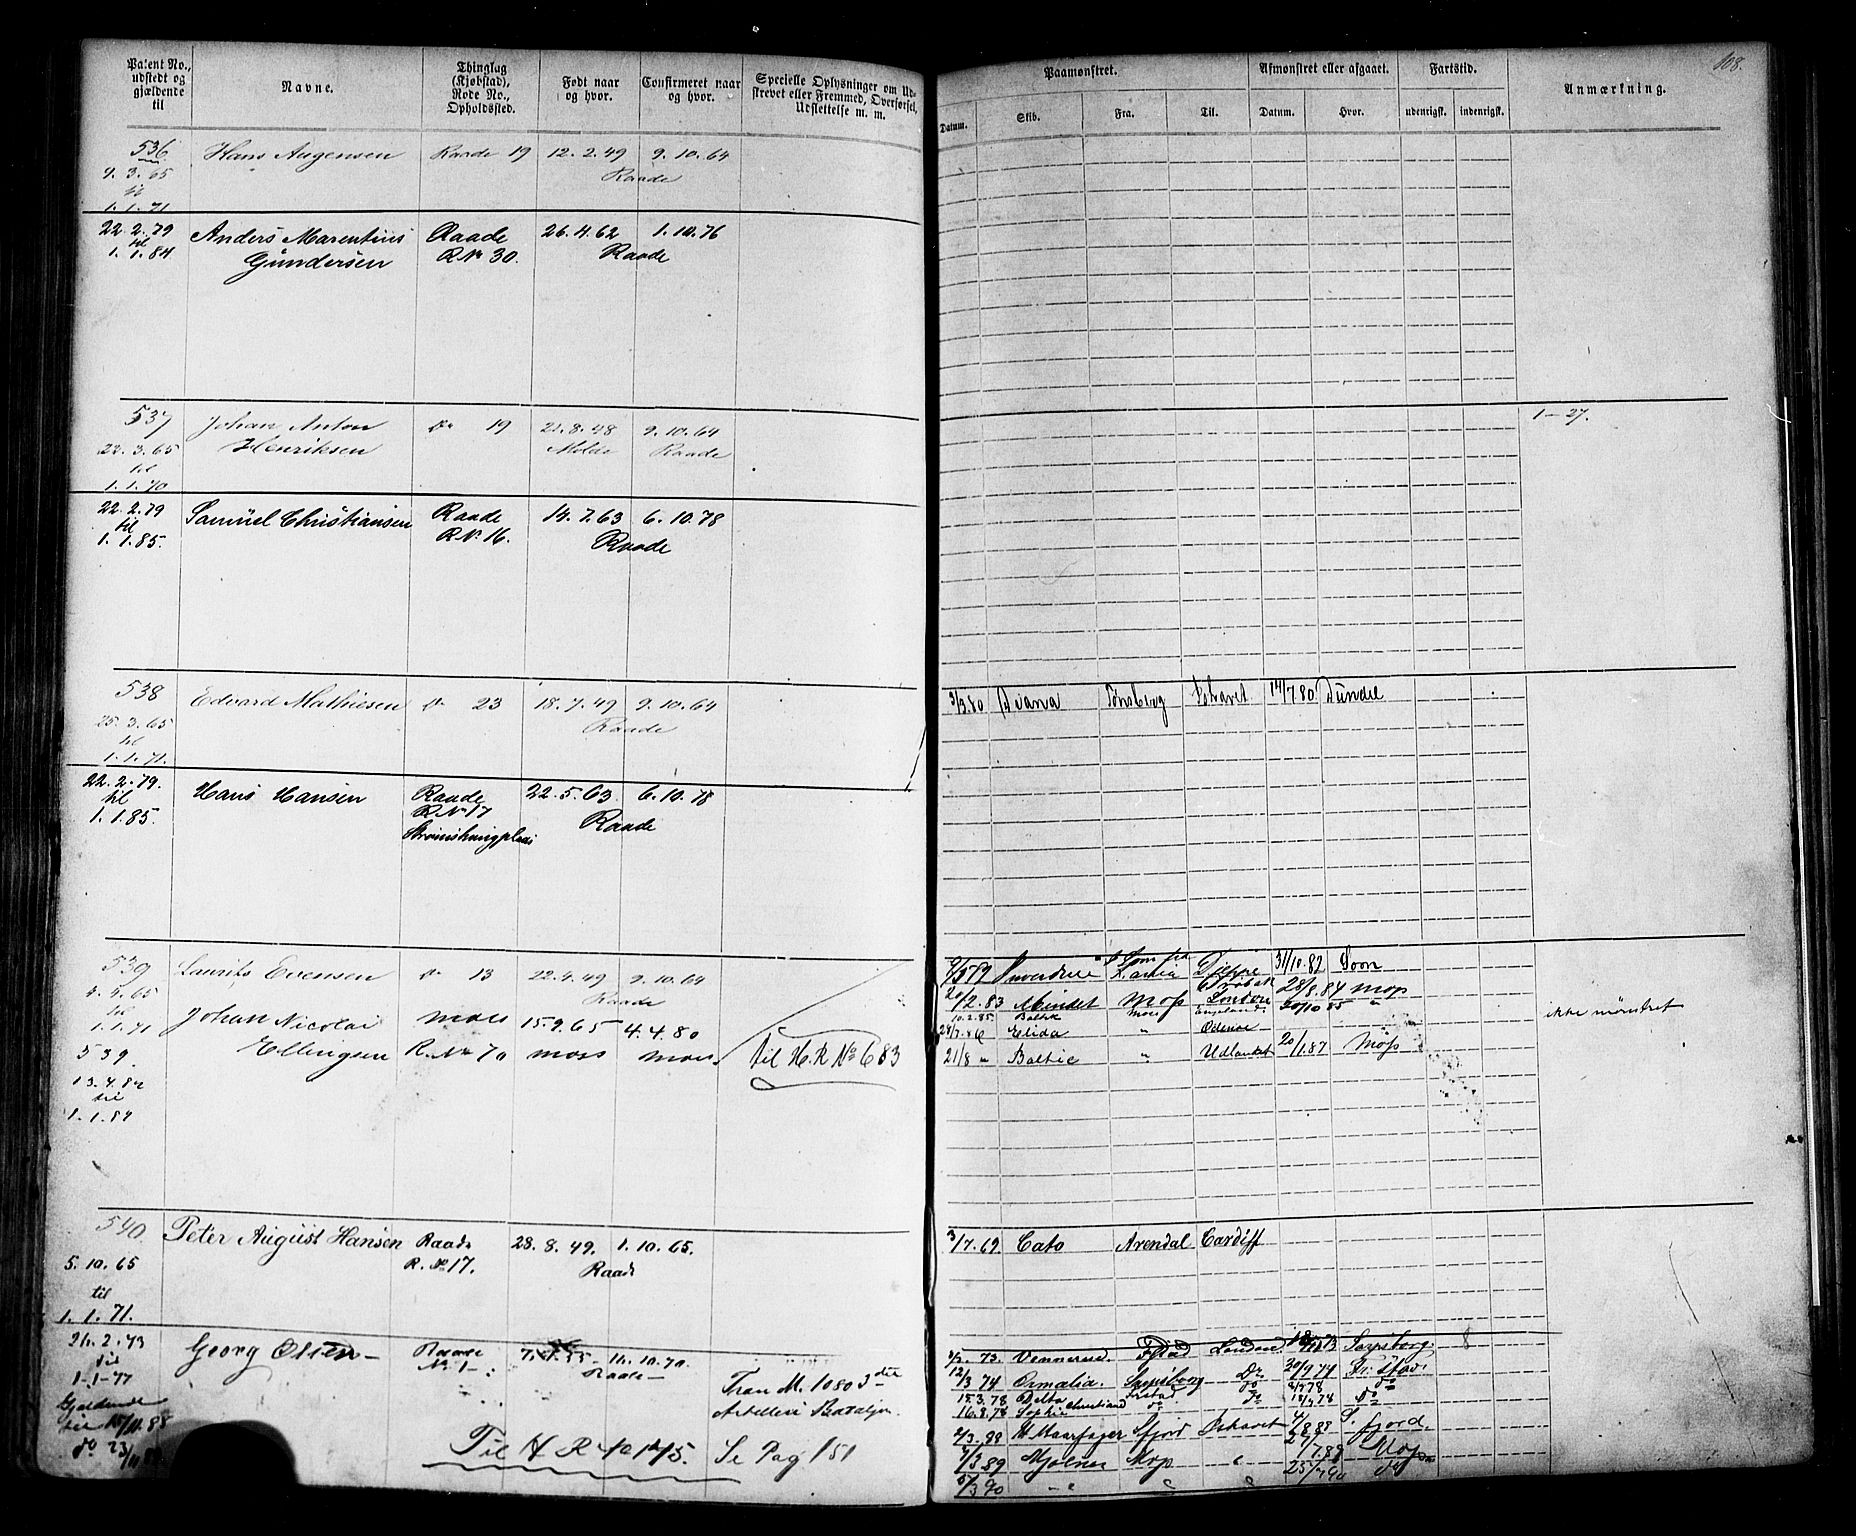 108.
Patent No., udstedt og gjældende til
Navne.
Thinglag (Kjøbstad), Rode No., Opholdssted.
Født naar og hvor.
Confirmeret naar og hvor.
Specielle Oplysninger om Udskrevet eller Fremmed, Overførsel, Udslettelse m. m.
Paamønstret.
Datum.
Skib.
Fra.
Til.
Afmønstret eller afgaaet.
Datum.
Hvor.
Fartstid.
udenrigsk.
indenrigsk.
Anmærkning.
536 Hans Augensen Raade 19 12.2.49 9.10.64
9.3.65 Raade
til
1.1.71
22.2.79 Anders Marentius Raade 26.4.62 1.10.76
til Gundersen R No 30. Raade
1.1.84
537 Johan Anton do 19 21.8.48 9.10.64 1-27.
22.3.65 Henriksen Molde Raade
til
1.1.70
22.2.79 Samuel Christiansen Raade 14.7.63 6.10.78
til R No 16. Raade
1.1.85.
538 Edvard Mathiesen do 23 18.7.49 9.10.64 3/3.80 Diana Tønsberg Ishavet 14/7 80 Dundee
25.3.65 Raade
til
1.1.71.
22.2.79. Hans Hansen Raade 22.5.63 6.10.78
til R. No 17 Raade
1.1.85.
539 Laurits Evensen do 13 22.4.49 9.10.64 Dieppe 31/10.82 Soon
4.4.65 Raade
til
1.1.71 Johan Nicolai Moss 15.9.65 4.4.80 20/2.83 Mindet Moss London 28/8.84 Moss
539. Ellingsen R. No 70 Moss Moss. Til H.R No 683
13.4.82
til
1.1.84
10.2.85. Baltic Moss England 20/10 85 "
28/7.86 Elida " Odense
21/8 " Baltic " Udlandet 20/1.87 Moss
ikke mønstret
540. Peter August Hansen Raade 28.8.49. 1.10.65. 3/7.69 Cato Arendal Cardiff
5.10.65 R. No 17. Raade
til
1.1.71.
21.2.73 Georg Olsen Raade 11.10.70.
til No 1 Raade
1-1-77
Gjældende
til 15/11.88
do 23/11
Tran M. 1080 3die
Artilleri Bataljon.
Til H R No 1275. Se Pag 151
73. Vennerne. Fstad London Sarpsborg. 8
12/3 74 Ormalia. Sarpsborg Do 20/9 74 Fr.stad.
15.3.78 Delta Frstad do do
16.8.78 Sophie Christiansand do do do
2/3.88 H Haarfager Sfjord Ishavet 4/8 88 S.fjord.
9/3 89 Mjølner Moss " 7.89 Moss
5/3 90 " " " 25/7 90 do